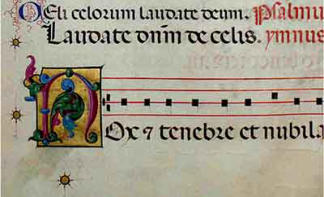 Celi celorum laudate deum. Psalmu
Laudate dnm̄ de celis. ymnus
Nox ⁊ tenebre et nubila